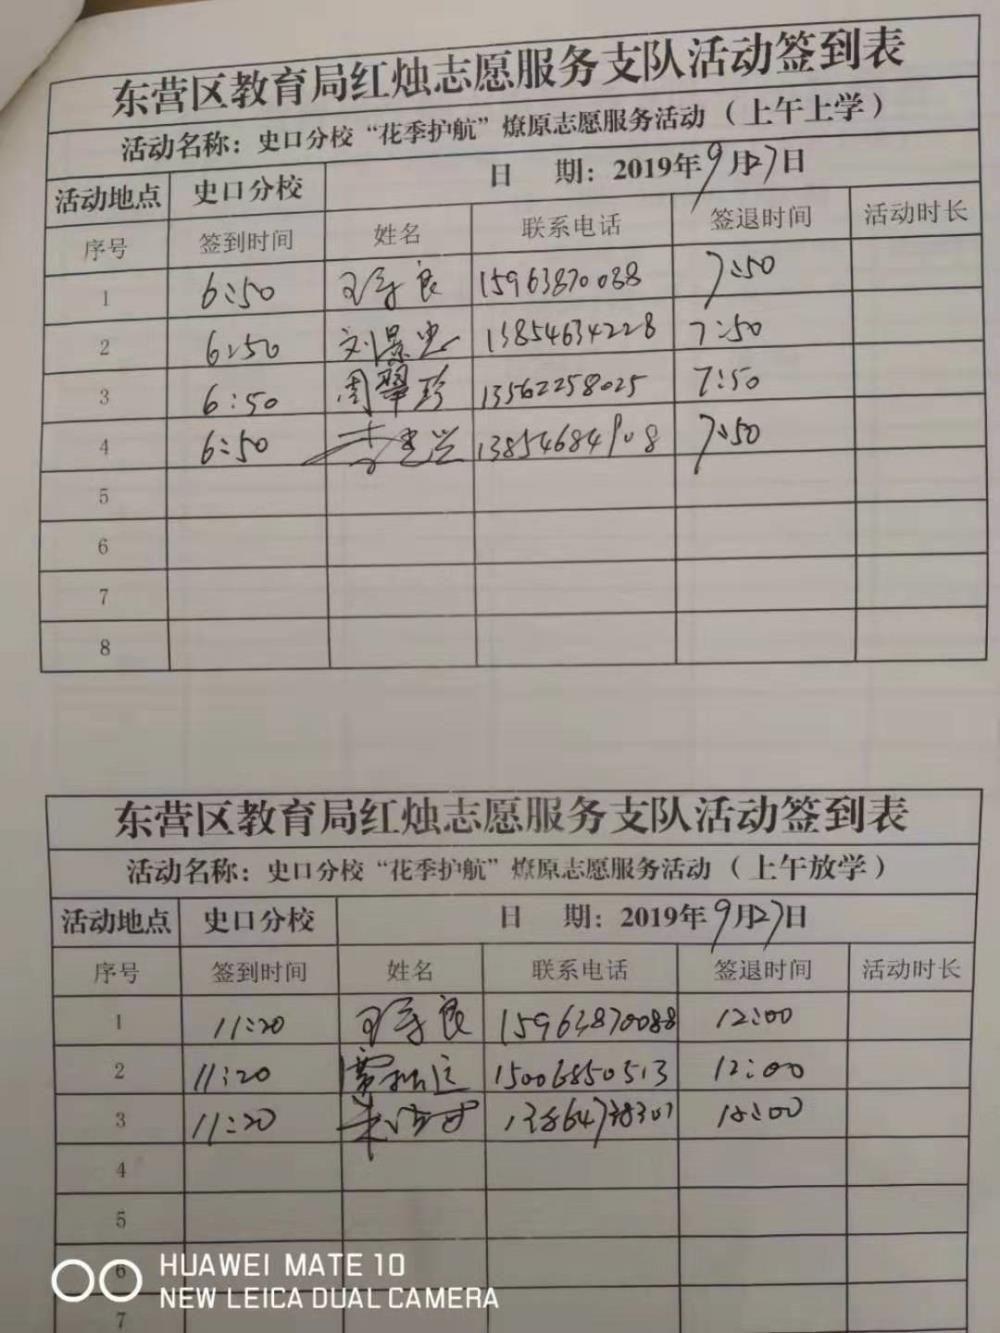 东营区教育局红烛志愿服务支队活动签到表
活动名称：史口分校“花季护航”燎原志愿服务活动（上午上学）
活动地点 史口分校 日 期：2019年9月27日
序号 签到时间 姓名 联系电话 签退时间 活动时长
1 6:50 15963870088 7:50
2 6:50 刘景忠 13854634228 7:50
3 6:50 周翠珍 13562258025 7:50
4 6:50 13854684908 7:50
5
6
7
8
东营区教育局红烛志愿服务支队活动签到表
活动名称：史口分校“花季护航”燎原志愿服务活动（上午放学）
活动地点 史口分校 日 期：2019年9月27日
序号 签到时间 姓名 联系电话 签退时间 活动时长
1 11:20 15963870088 12:00
2 11:20 15006850513 12:00
3 11:20 12:00
4
5
6
7
HUAWEI MATE 10
NEW LEICA DUAL CAMERA